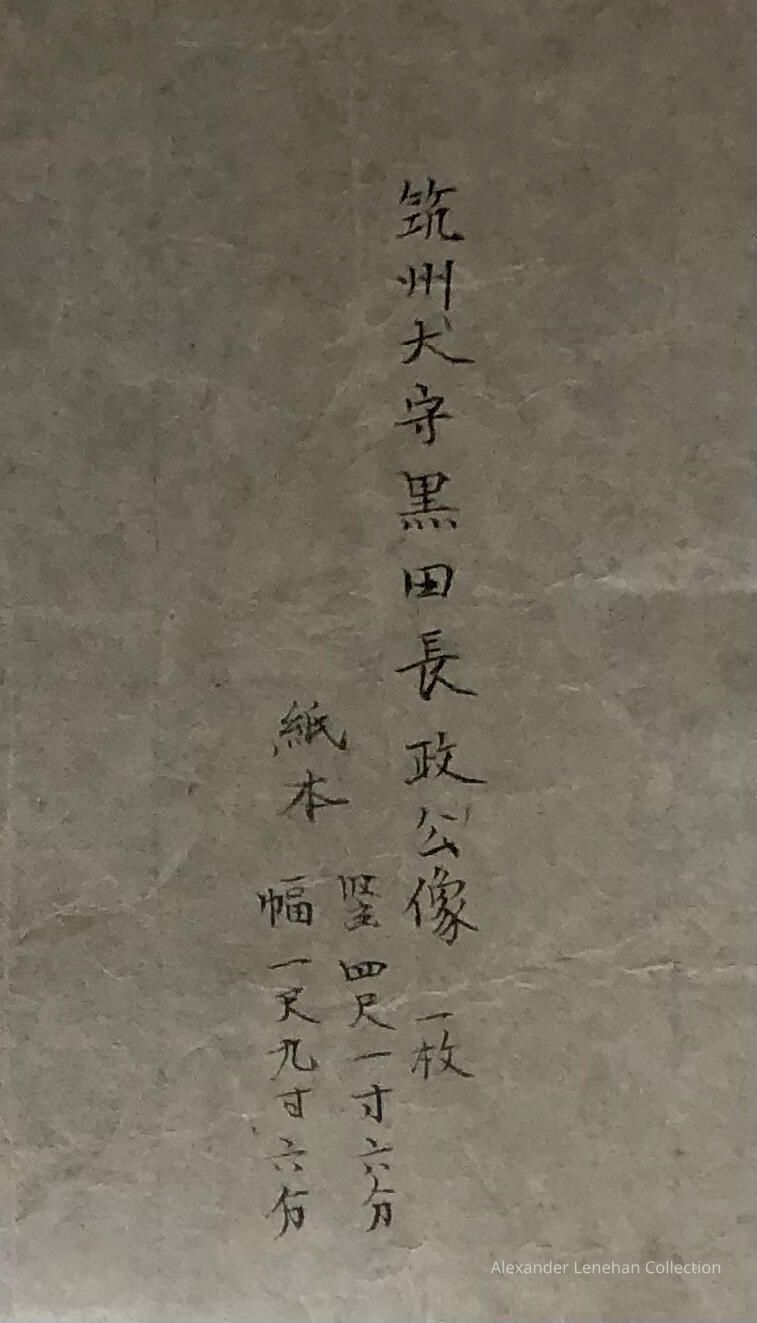 筑州犬守黒田長政公像 一枚
紙本
竪四尺一寸六分
幅一尺九寸六分
Alexander Lenehan Collection